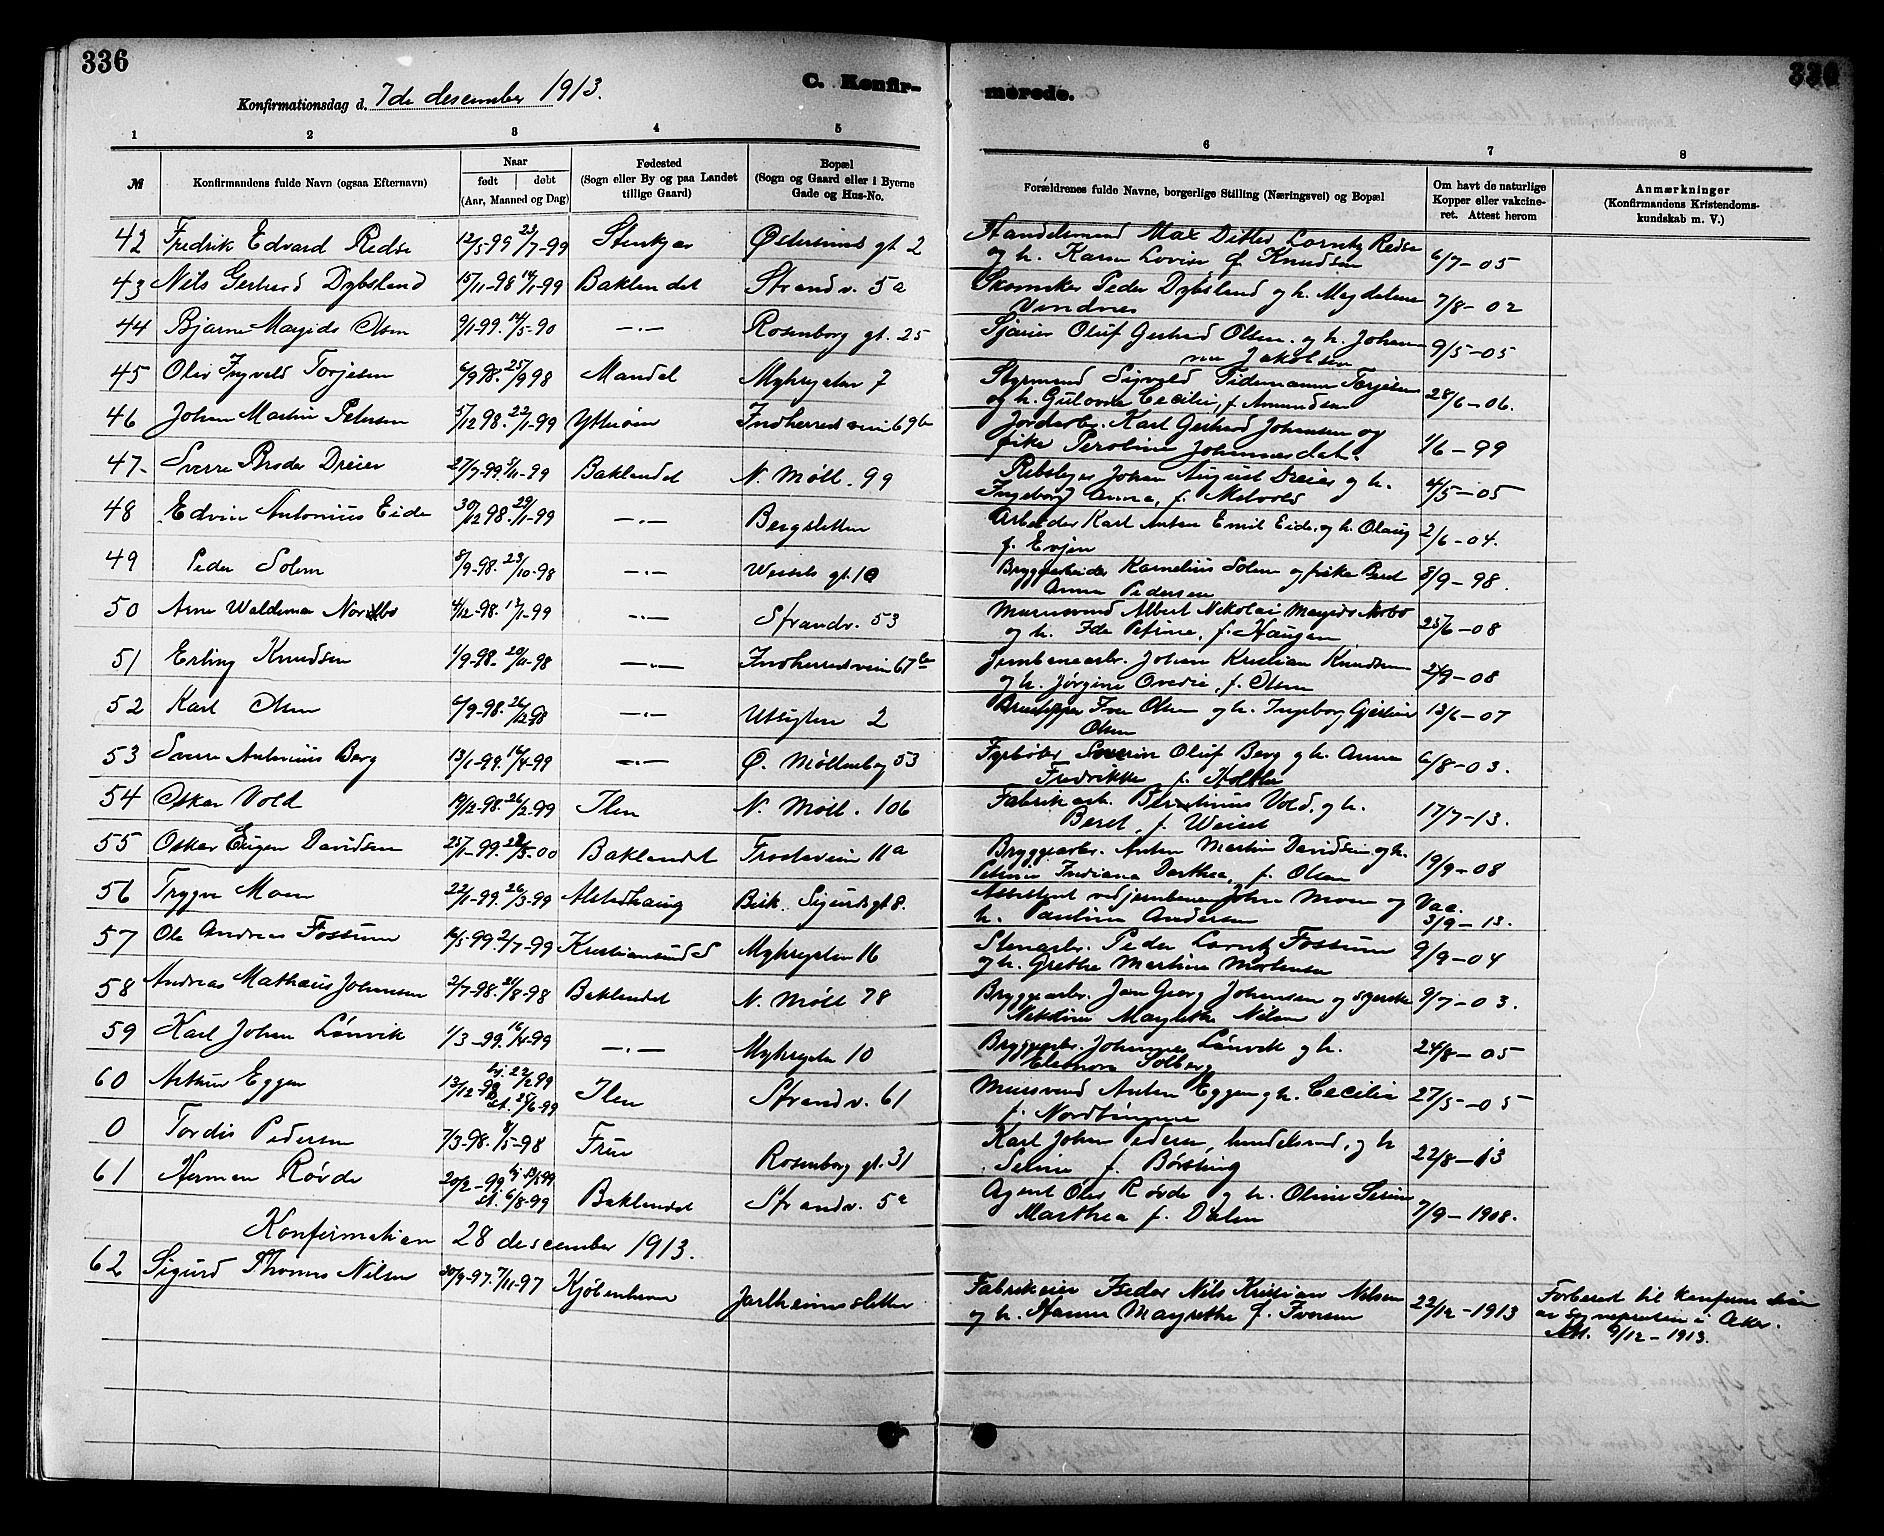 336
C. Konfir-
merede.
336
Konfirmationsdag d. 7de desember 1913.
1 2 3 4 5 6 7 8
№
Konfirmandens fulde Navn (ogsaa Efternavn)
Naar
født | døbt
(Aar, Maaned og Dag)
Fødested
(Sogn eller By og paa Landet
tillige Gaard)
Bopæl
(Sogn og Gaard eller i Byerne
Gade og Hus-No.
Forældrenes fulde Navne, borgerlige Stilling (Næringsvei) og Bopæl
Om havt de naturlige
Kopper eller vakcine-
ret. Attest herom
Anmærkninger
(Konfirmandens Kristendoms-
kundskab m. V.)
42 Fredrik Edvard Redse 12/5-99 23/7-99 Stenkjær Østersunds gt. 2 Handelsmand Max Ditlev Lorntz Redse
og h. Karen Lovise f. Knudsen 6/7-05
43 Nils Gerhard Dybsland 15/11-98 Baklandet Strandv. 5a Skomaker Peder Dybsland og h. Magdalene
Vindnes 7/8-02
44 Bjarne Magids Olsen 9/1-99. 14/5-90 —.— Rosenborg gt. 25 Sjauer Oluf Gerhard Olsen og h. Johanna
Jakobsen 9/5-05
45 Olav Ingvald Torjesen 6/9 98. 25/9 98 Mandal Myhregaten 7 Styrmand Sigvald Tidemann Torjesen
og h. Gulovna Cecilie, f. Amundsen 28/6-06.
46 Johan Martin Petersen 5/12 98. 22/1-99 Ytterøen Indherredsveien 69b Jordarb. Karl Gerhard Johansen og
pike Peroline Johannesdat. 1/6-99
47- Sverre Broder Dreier 27/7-99. 5/11-99 Baklandet N. Møll. 99 Rebslager Johan August Dreier og h.
Ingeborg Anna, f. 4/5-05
48 Edvin Antonius Eide 30/12 98. 29/1-99 —.— Bergsletten Arbeider Karl Anton Emil Eide, og h. Olaug
f. Evjen 2/6-04.
49 Peder Solem 8/9-98. 23/10-98 —.— Weisels gt. 10 Bryggearbeider Kornelius Solem og pike Beret
Anna Pedersen 8/9-98.
50 Arne Waldemar Nordbo 4/12-98. 12/1-99 —.— Strandv. 53 Murersvend Albert Nikolai Magids Norbo
og h. Ida Petrine, f. Haugen 25/6-08
51 Erling Knudsen 1/9-98. 20/11-98 —.— Indherredsveien 67b Jernbanearb. Johan Kristian Knudsen
og h. Jørgine Ovedie, f. Olsen 2/9-08
52 Karl Olsen 6/9-98. 26/12-98 —.— Utsigten 2 Iver Olsen og h. Ingeborg Gjertine
Olsen 13/6-07
53 Sverre Antonius Berg 13/1-99. 16/4-99 —.— Ø. Møllenberg 53 Fyrbøter Severin Oluf Berg og h. Anna
Fredrikke f. Holthe 6/8-03.
54 Oskar Vold 19/12-98. 26/2-99 Ilen N. Møll. 106 Fabrikarb. Berntinius Vold, og h.
Beret, f. Weiset 17/7-13.
55 Oskar Eugen Davidsen 25/1-99. 28/5-00 Baklandet Frostaveien 11a Bryggearb. Anton Martin Davidsen og h.
Petrine Indiana Dorthea, f. Olsen 19/9-08
56 Trygve Moen 22/1-99. 26/3-99 Alstadhaug Bisk. Sigurdsgt. 8. Assistent ved jernbanen John Moen og
h. Pauline Andersen Vac. 3/9-13.
57 Ole Andreas Fossum 14/5-99. 2/7-99 Kristiansund S Myhregaten 16 Stenarb. Peder Lorntz Fossum
og h. Grethe Martine Mortensen 9/9-04
58 Andreas Mathæus Johansen 2/7-98. 21/8-98 Baklandet N. Møll 78 Bryggearb. Jan Georg Johansen og syerske
Nekoline Margrethe Nilsen 9/7-03.
59 Karl Johan Lånvik 1/3-99. 16/4-99 —.— Myhregaten 10 Bryggearb. Johannes Lånvik og h.
Eleonora Solberg 24/8-05
60 Arthur Eggen 13/12-98 hj. 22/2 99
st. 25/6-99 Ilen Strandv. 61 Murersvend Anton Eggen og h. Cecilie
f. 27/5-05
0 Tordis Pedersen 7/3-98. 8/5-98 Frue Rosenborg gt. 31 Karl Johan Pedersen, handelsmd, og h
Seline f. Børsting 22/8-13
61 Herman Rørde 20/2-99 hj. 19/5 99
st. 6/8-99 Baklandet Strandv. 5a Agent Olav Rørde og h. Oline Serine
Marthea f. Dalen 7/9-1908.
Konfirmation 28 descember 1913.
62 Sigurd Thomas Nilsen 30/9-97. 7/11-97 Kjøbenhavn Jarlheimsletten Fabrikeier Peder Nils Kristian Nilsen
og h. Hanna Margrethe f. Iversen 22/12-1913 Forberedt til konfirmation
av sogneprsten i Aker.
Att. 9/12-1913.